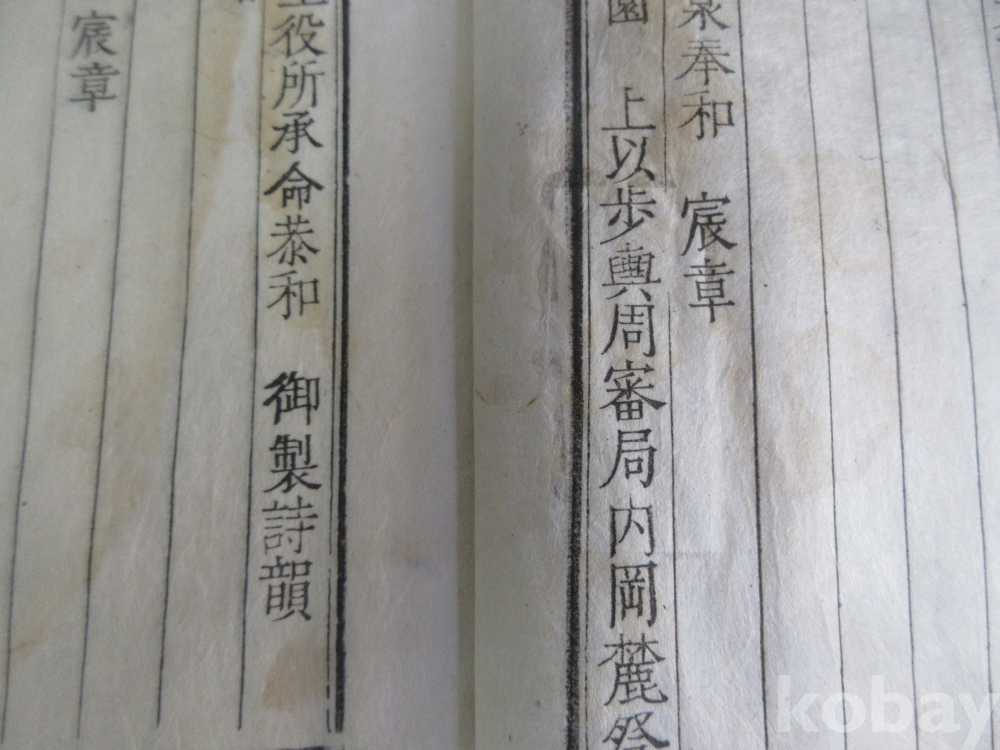 奉和 宸章
園 上以歩輿周審局内岡麓祭
役所承命恭和 御製詩韻
宸章
kobay